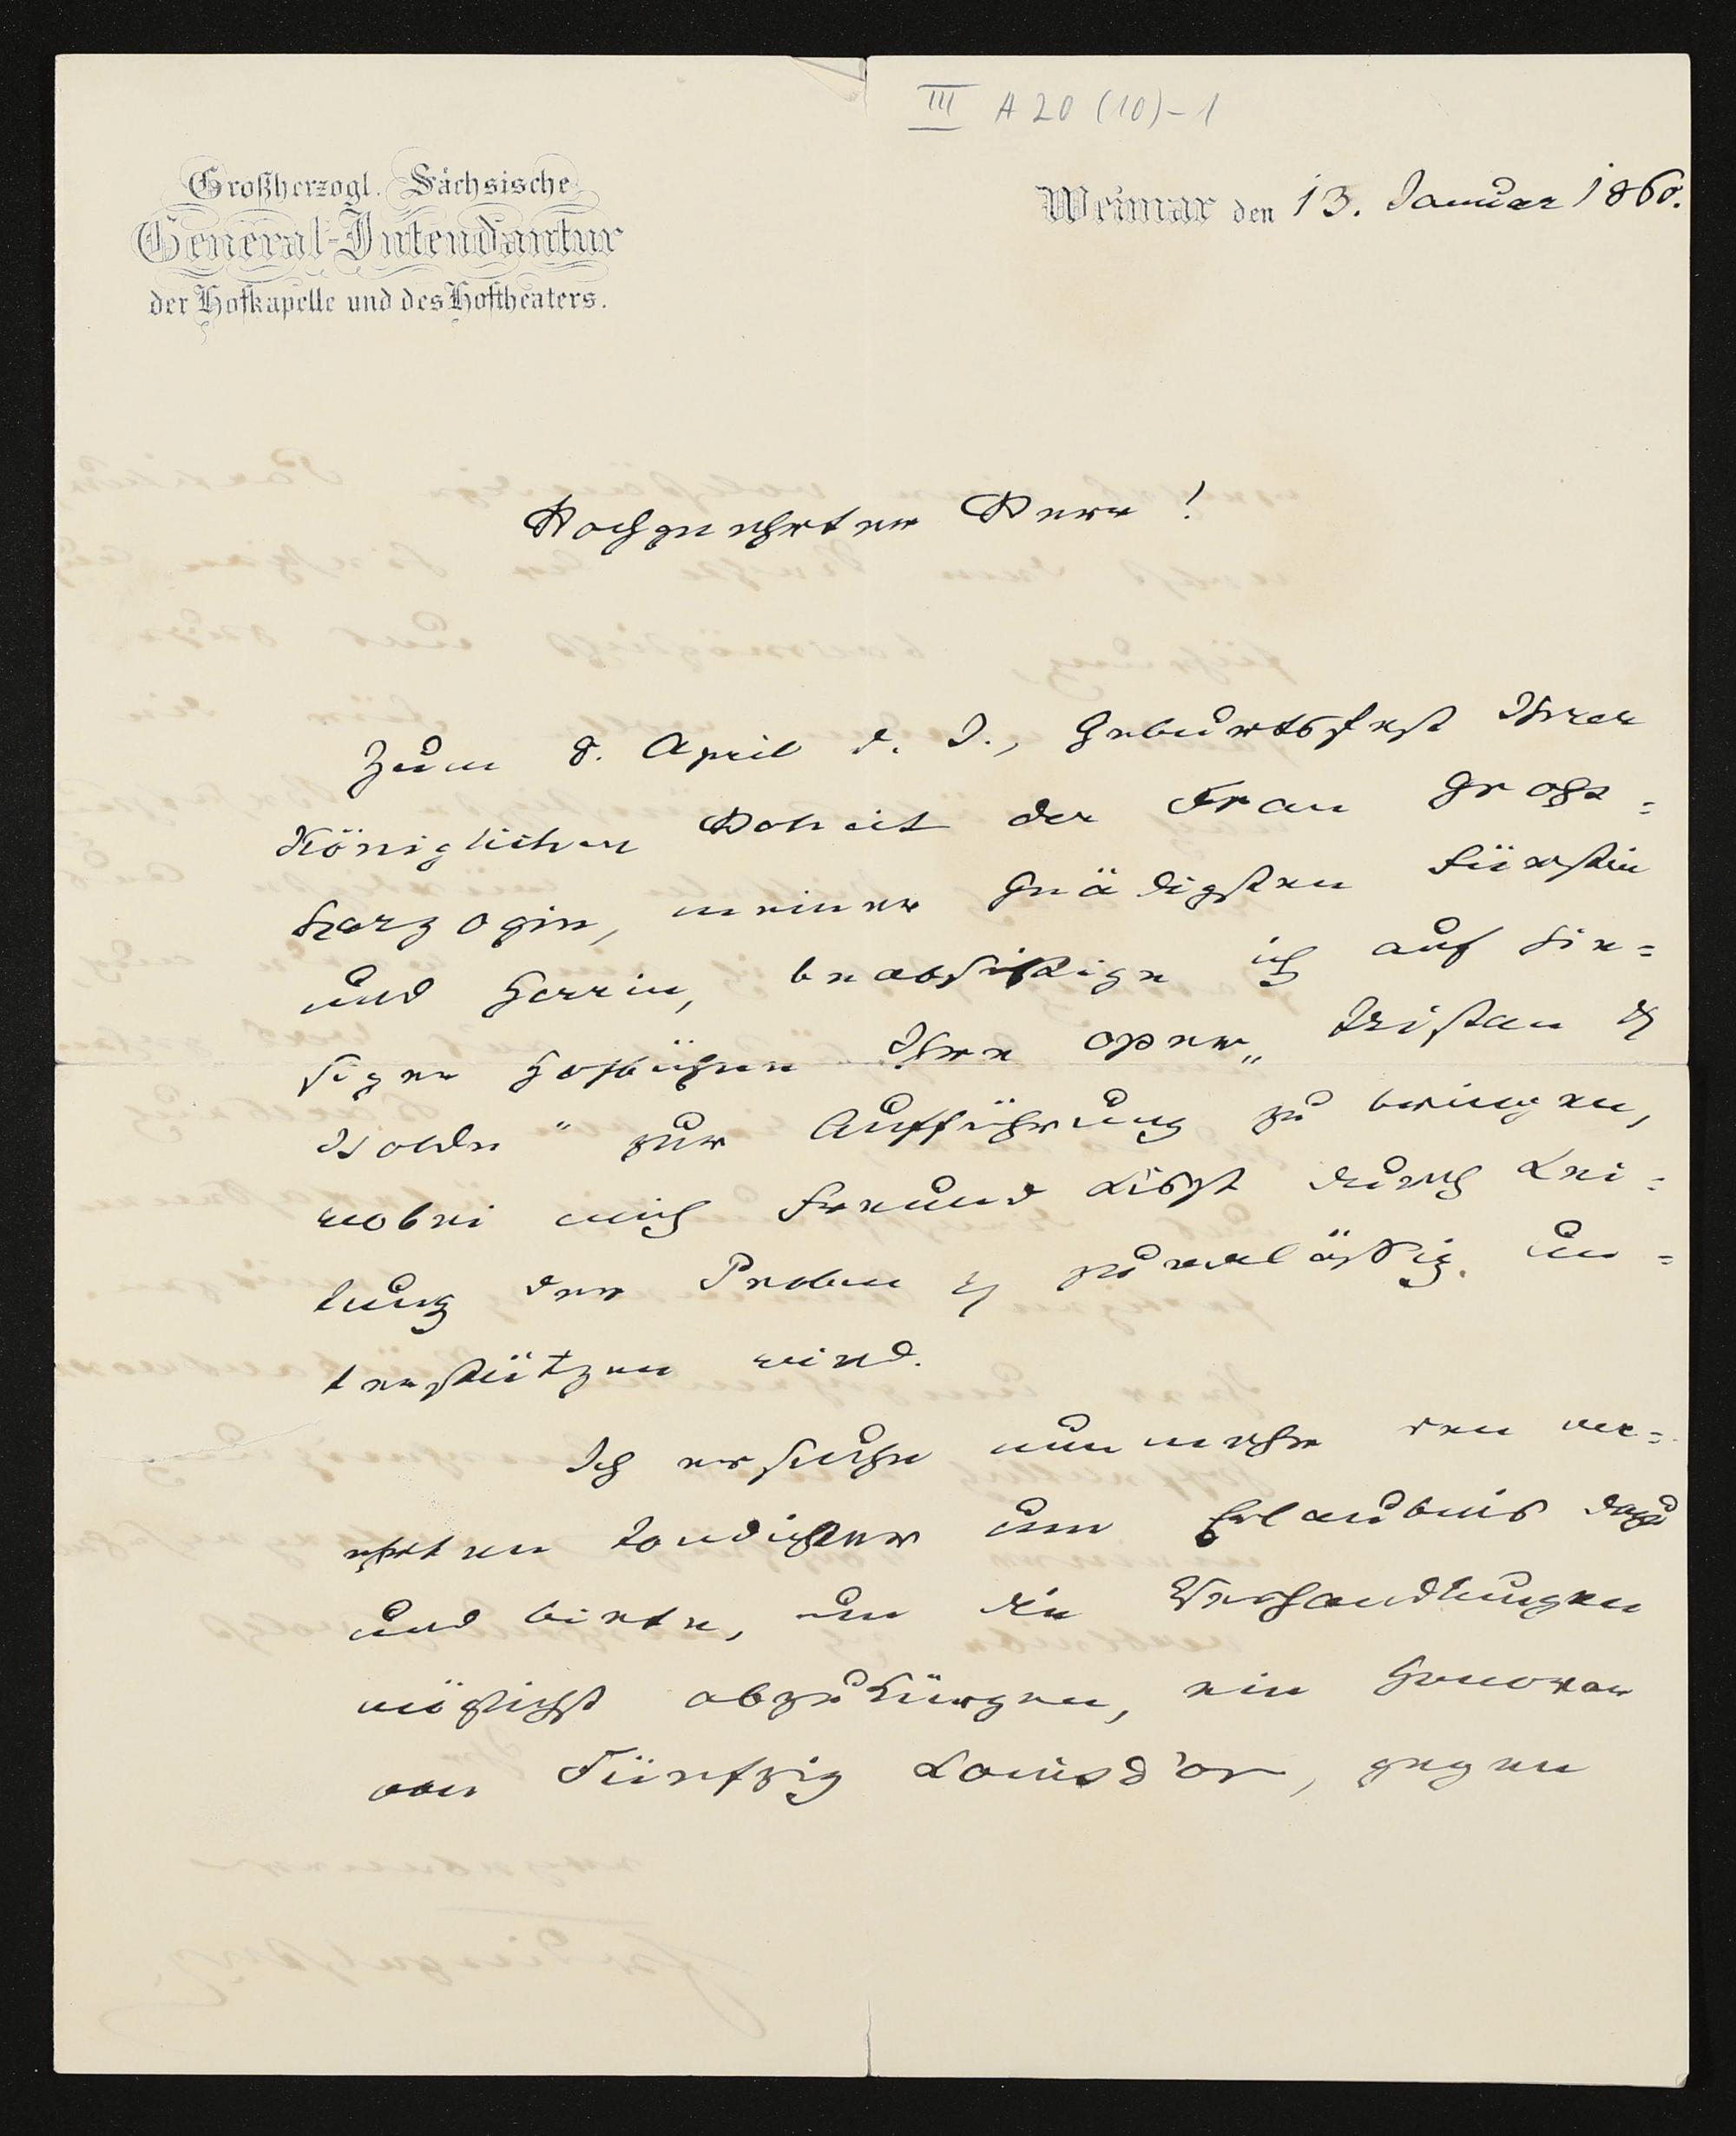 III A 20 (10)-1
Großherzogl. Sächsische
General-Intendantur
der Hofkapelle und des Hoftheaters.
Weimar den 13. Januar 1860.
Hochgeehrter Herr!
Zum 8. April d. J., Geburtsfest Ihrer
Königlichen Hoheit der Frau Gross=
herzogin, meiner gnädigsten Fürstin
und Herrin, beabsichtige ich auf hie=
siger Hofbühne Ihre Oper „Tristan &
Isolde" zur Aufführung zu bringen,
wobei mich Freund Liszt durch Lei=
tung der Proben & zuverlässig un=
terstützen wird.
Ich ersuche nunmehr den ver=
ehrten Tondichter um Erlaubnis dazu
und biete, um die Verhandlungen
möglichst abzukürzen, ein Honorar
von Fünfzig Louisd'or, gegen